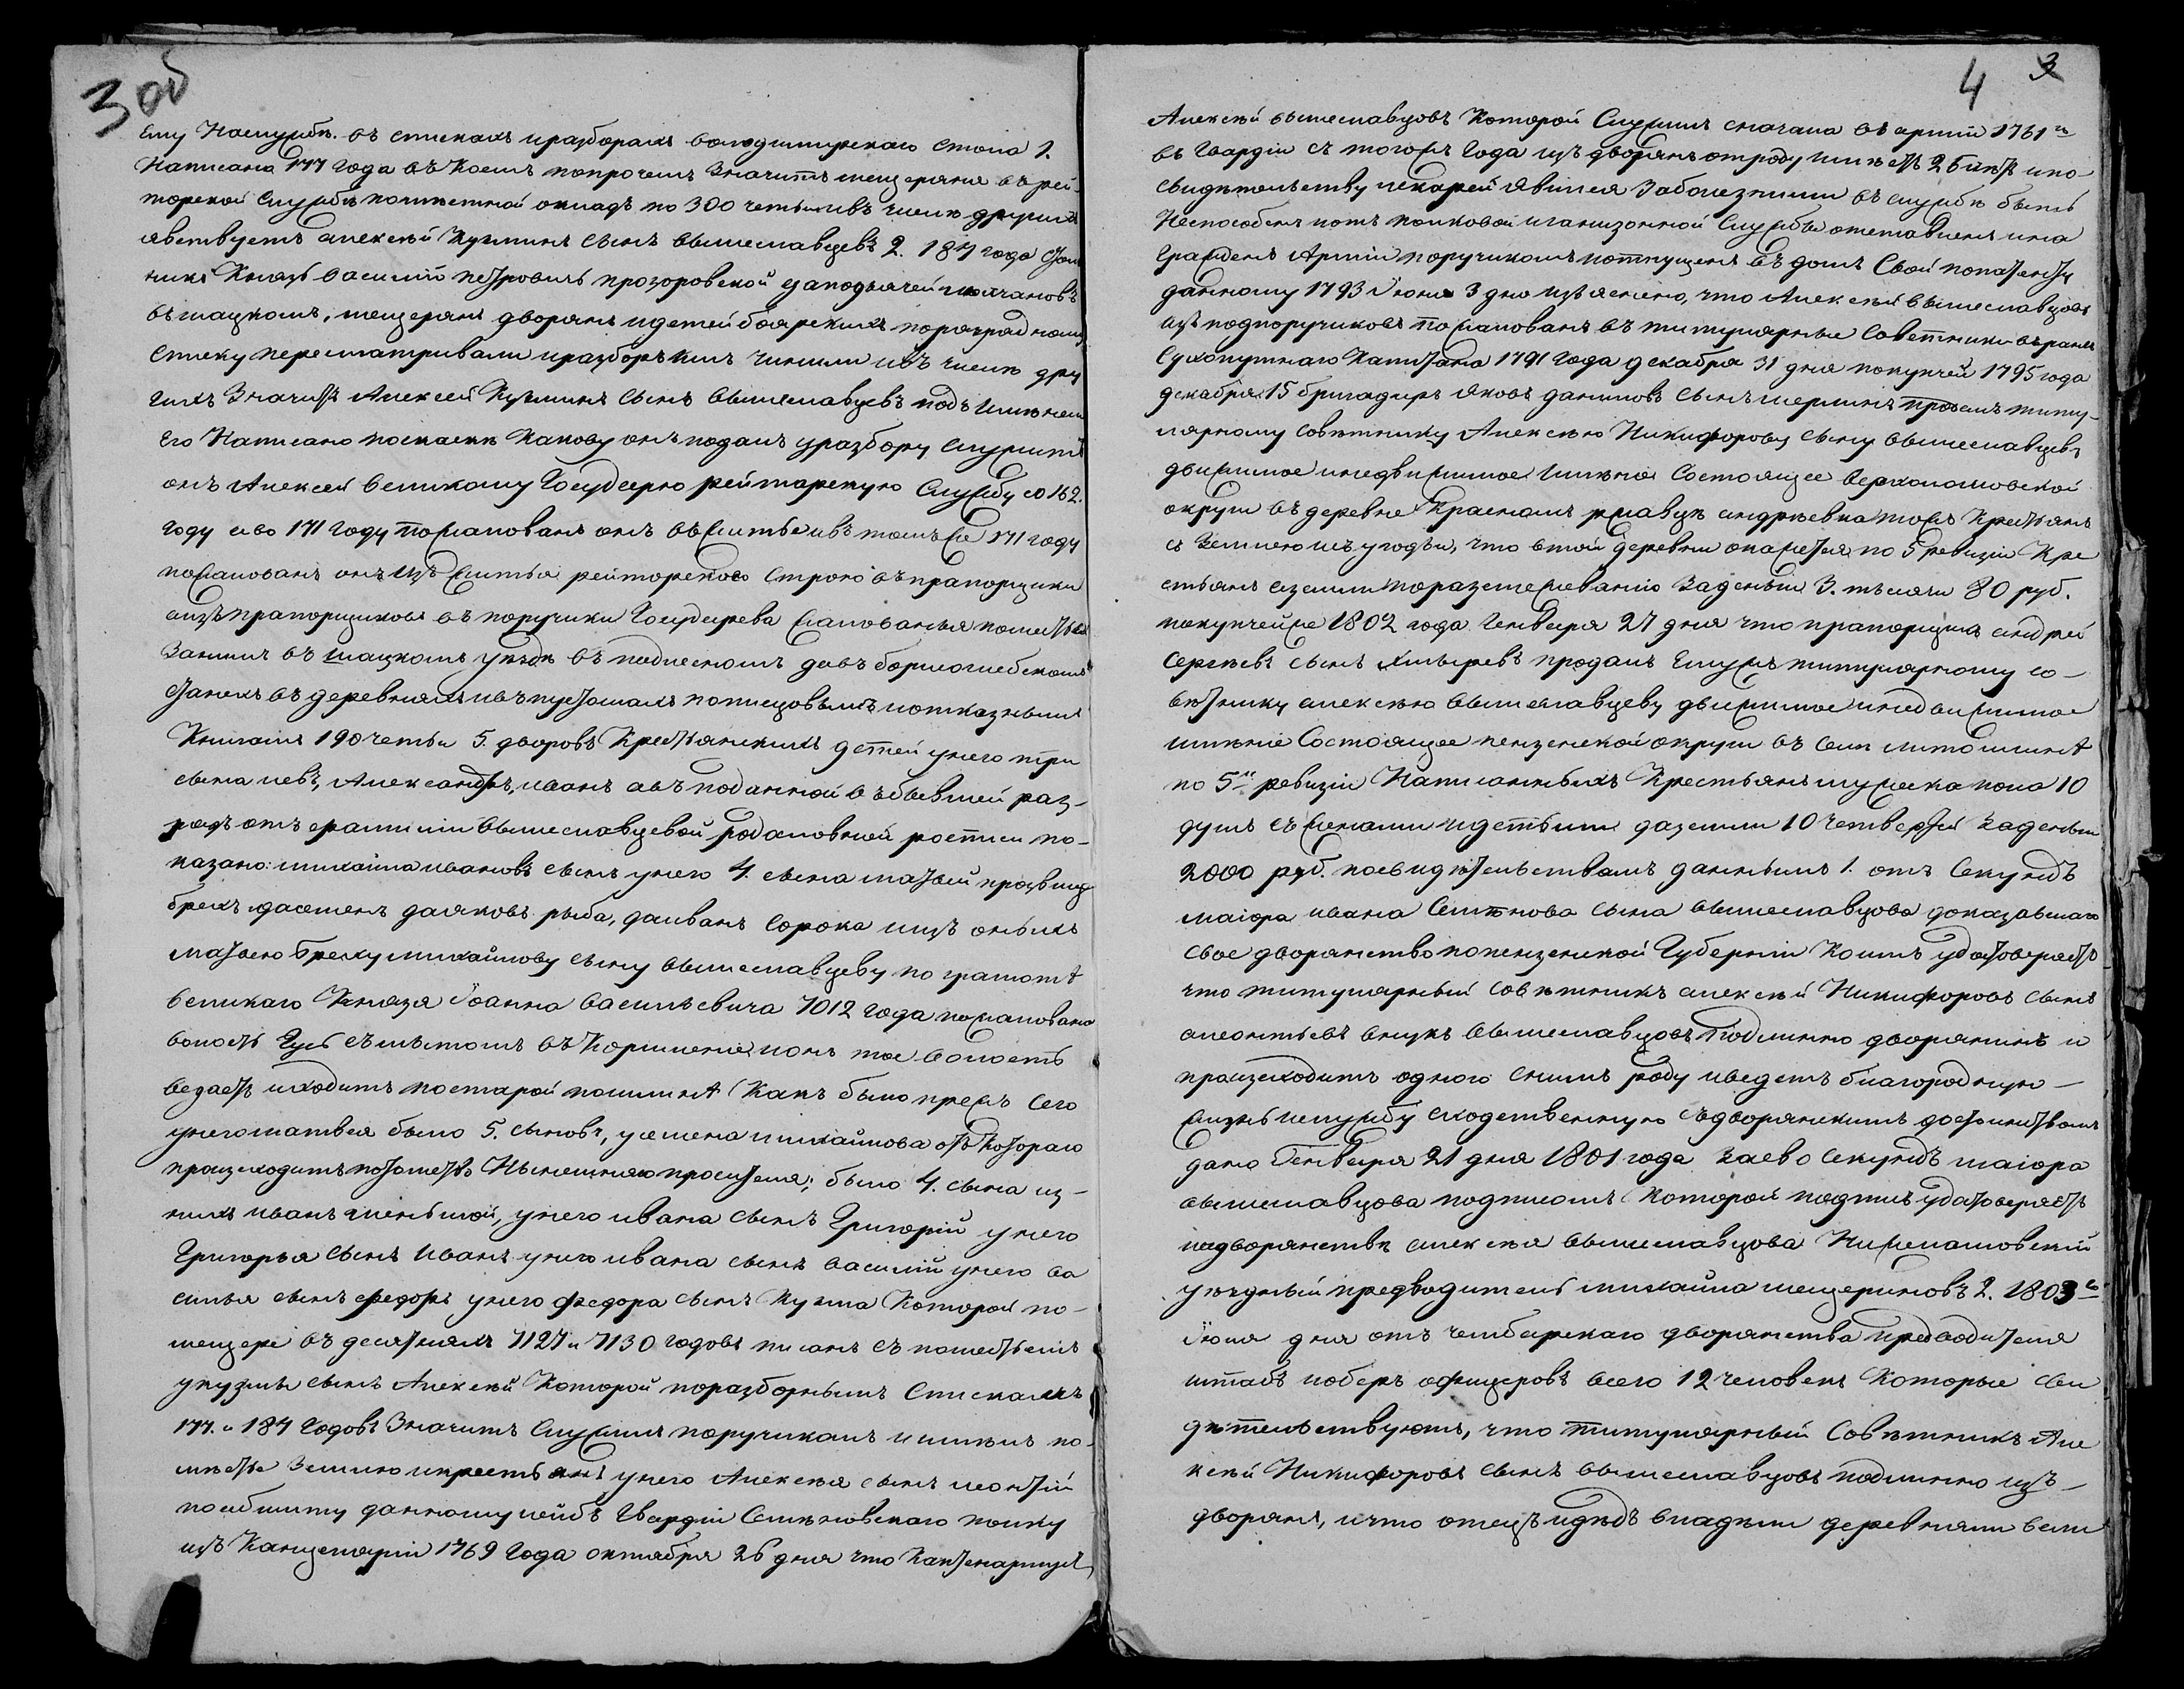 3 об
ему На службе. въ спискахъ и разборахъ володимирскаго стола 1.
Написана 177 года въ Коемъ попрочемъ Значитъ мещеряня въ рей-
торской Службе помѣстной окладъ по 300 четьи ивъ числѣ другихъ
явствуетъ алексѣй Кузминъ сынъ вышеславцевъ 2. 184 года Столь
никъ Князь василий петровичь прозоровской да подьячей молчановъ
въ шацкомъ, мещерянъ дворянъ и детей боярскихъ по разрядному
списку пересматривали и разборъ имъ чинили ивъ числѣ дру
гихъ Значитъ Алексей Кузминъ сынъ вышеславцевъ подъ имянемъ
Его Написано по сказкѣ Какову онъ подалъ у разбору служитъ
онъ Алексей великому Государю рейтарскую Службу со 162.
году а во 171 году пожалованъ онъ въ житье ивъ томъ же 171 году
пожалованъ онъ изъ житья рейторского строю въ прапорщики
а изъ прапорщиковъ въ поручики Государева жалованья поместья
За нимъ въ шацкомъ уѣзде въ подлесномъ да въ борисоглебскомъ
станехъ въ деревняхъ ивъ пустошахъ по писцовымъ и отказнымъ
Книгамъ 190 четьи 5. дворовъ Крестьянскихъ детей у него три
сына левъ, Александръ, иванъ а въ поданной въ бывшей раз-
рядъ отъ фамилии вышеславцевой родословной росписи по-
казано: михайла ивановъ сынъ у него 4. сына матвей прозвище
брехъ да семенъ да яковъ рыба, да иванъ сорока и изъ оныхъ
матвею бреху михайлову сыну вышеславцеву по грамотѣ
великаго Князя Іоанна васильевича 7012 года пожалована
волость Гусь съ мытомъ въ Кормление и онъ тое волость
ведаетъ и ходитъ по старой пошлинѣ Какъ было прежъ сего
у него матвея было 5. сыновъ, у семена михайлова отъ Котораго
произходитъ потомство Нынешняго просителя; было 4. сына из-
нихъ иванъ меньшой, у него ивана сынъ Григорий у него
Григорья сынъ иванъ у него ивана сынъ василий у него ва
силья сынъ федоръ у него федора сынъ Кузма Которой по-
мещере въ десятняхъ 7127 и 7130 годовъ писанъ съ поместьемъ
у кузмы сынъ Алексѣй Которой по разборнымъ Спискамъ
177. и 184 Годовъ Значитъ Служилъ поручикомъ и имѣлъ по-
мѣстье Землю и крестьянъ у него Алексѣя сынъ леонтий
по абшиту данному лейбъ Гвардіи Семеновскаго полку
изъ Канцелярии 1769 года октября 26 дня что Каптенармусъ
4 3
Алексѣй вышеславцовъ Которой Служилъ сначала въ армии 1761го
въ Гвардии съ того жъ Года изъ дворянъ отроду имѣетъ 26 лѣтъ и по-
свидѣтельству лекарей явился За болезньми въ службе быть
Неспособенъ и отъ полковой и гарнизонной Службы отставленъ и на
гражденъ Армии поручикомъ и отпущенъ въ домъ Свой по патенту
данному 1793 Июня 3 дня изъяснено, что Алексѣй вышеславцовъ
изъ подпоручиковъ пожалованъ въ титулярные Советники въ ранге
Сухопутнаго Капитана 1791 Года декабря 31 дня по купчей 1795 года
декабря 15 бригадиръ яковъ даниловъ сынъ мерлинъ продалъ титу-
лярному Совѣтнику Алексѣю Никифорову сыну вышеславцеву
движимое и недвижимое имѣние Состоящее верхоломовской
округи въ деревне Красномъ ржавце андреевка тожъ Крестьянъ
съ Землею исъ угодьи, что в той деревни окажется по 5 ревизии Кре
стьянъ и земли по размежеванию За деньги 3. тысячи 80 руб.
по купчей же 1802 года Генваря 27 дня что прапорщикъ андрей
Сергеевъ сынъ хмыревъ продалъ ему жъ титулярному со-
ветнику алексѣю вышеславцеву движимое и недвижимое
имѣніе Состоящее пензенской округи въ селе литомшинѣ
по 5й ревизіи Написанныхъ Крестьянъ мужеска пола 10
душъ съ женами и детьми да земли 10 четвертей За деньги
2000 руб. по свидѣтельствамъ даннымъ 1. отъ Секундъ
маіора ивана Семенова сына вышеславцова доказавшаго
свое дворянство по пензенской Губерніи Коимъ удостоверяетъ
что титулярный Совѣтникъ алексѣй Никифоровъ сынъ
а леонтьевъ внукъ вышеславцовъ подлинно дворянинъ и
произходитъ одного с нимъ роду и ведетъ благородную-
жизнь и службу сходственную съ дворянскимъ достоинствомъ
дано Генваря 21 дня 1801 года За ево Секундъ маіора
вышеславцова подписомъ Которой подпись удостоверяетъ
и о дворянстве алексѣя вышеславцова Нижнеломовский
уѣздный предводитель михайла мещериновъ 2. 1803го
Июня дня отъ чембарскаго дворянства предводителя
штабъ и оберъ офицеровъ всего 12 человекъ Которые сви
дѣтельствуютъ, что титулярный Совѣтникъ Але
ксѣй Никифоровъ сынъ вышеславцовъ подлинно изъ-
дворянъ, и что отецъ и дѣдъ владели деревнями вели